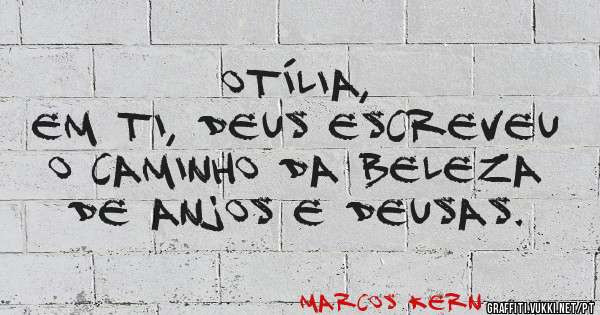 OTÍLIA,
EM TI, DEUS ESCREVEU
O CAMINHO DA BELEZA
DE ANJOS E DEUSAS.
MARCOS KERN
GRAFFITI.VUKKI.NET/PT